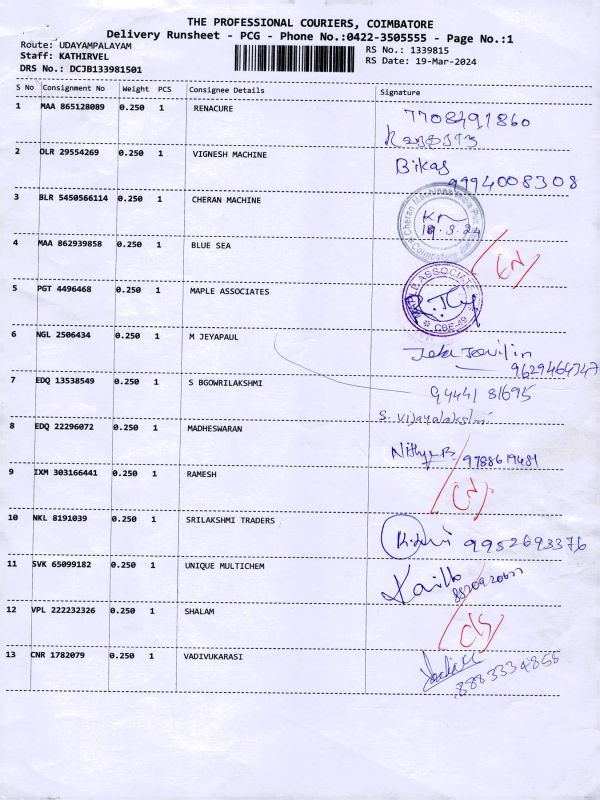 THE PROFESSIONAL COURIERS, COIMBATORE
Delivery Runsheet - PCG - Phone No.:0422-3505555 - Page No.:1
Route: UDAYAMPALAYAM
Staff: KATHIRVEL
DRS No.: DCJB133981501
RS No.: 1339815
RS Date: 19-Mar-2024
S No Consignment No Weight PCS Consignee Details Signature
1 MAA 865128089 0.250 1 RENACURE 7708491860
2 OLR 29554269 0.250 1 VIGNESH MACHINE Bikas
9994008308
3 BLR 5450566114 0.250 1 CHERAN MACHINE
19.3.24
4 MAA 862939858 0.250 1 BLUE SEA
5 PGT 4496468 0.250 1 MAPLE ASSOCIATES
ASSOCIATE
CBE-49
6 NGL 2506434 0.250 1 M JEYAPAUL
9629464347
7 EDQ 13538549 0.250 1 S BGOWRILAKSHMI 94441 81695
S. Vijayalakshmi
8 EDQ 22296072 0.250 1 MADHESWARAN Nithya B. 9788619481
9 IXM 303166441 0.250 1 RAMESH
10 NKL 8191039 0.250 1 SRILAKSHMI TRADERS 9952693376
11 SVK 65099182 0.250 1 UNIQUE MULTICHEM
12 VPL 222232326 0.250 1 SHALAM
13 CNR 1782079 0.250 1 VADIVUKARASI
8883334856